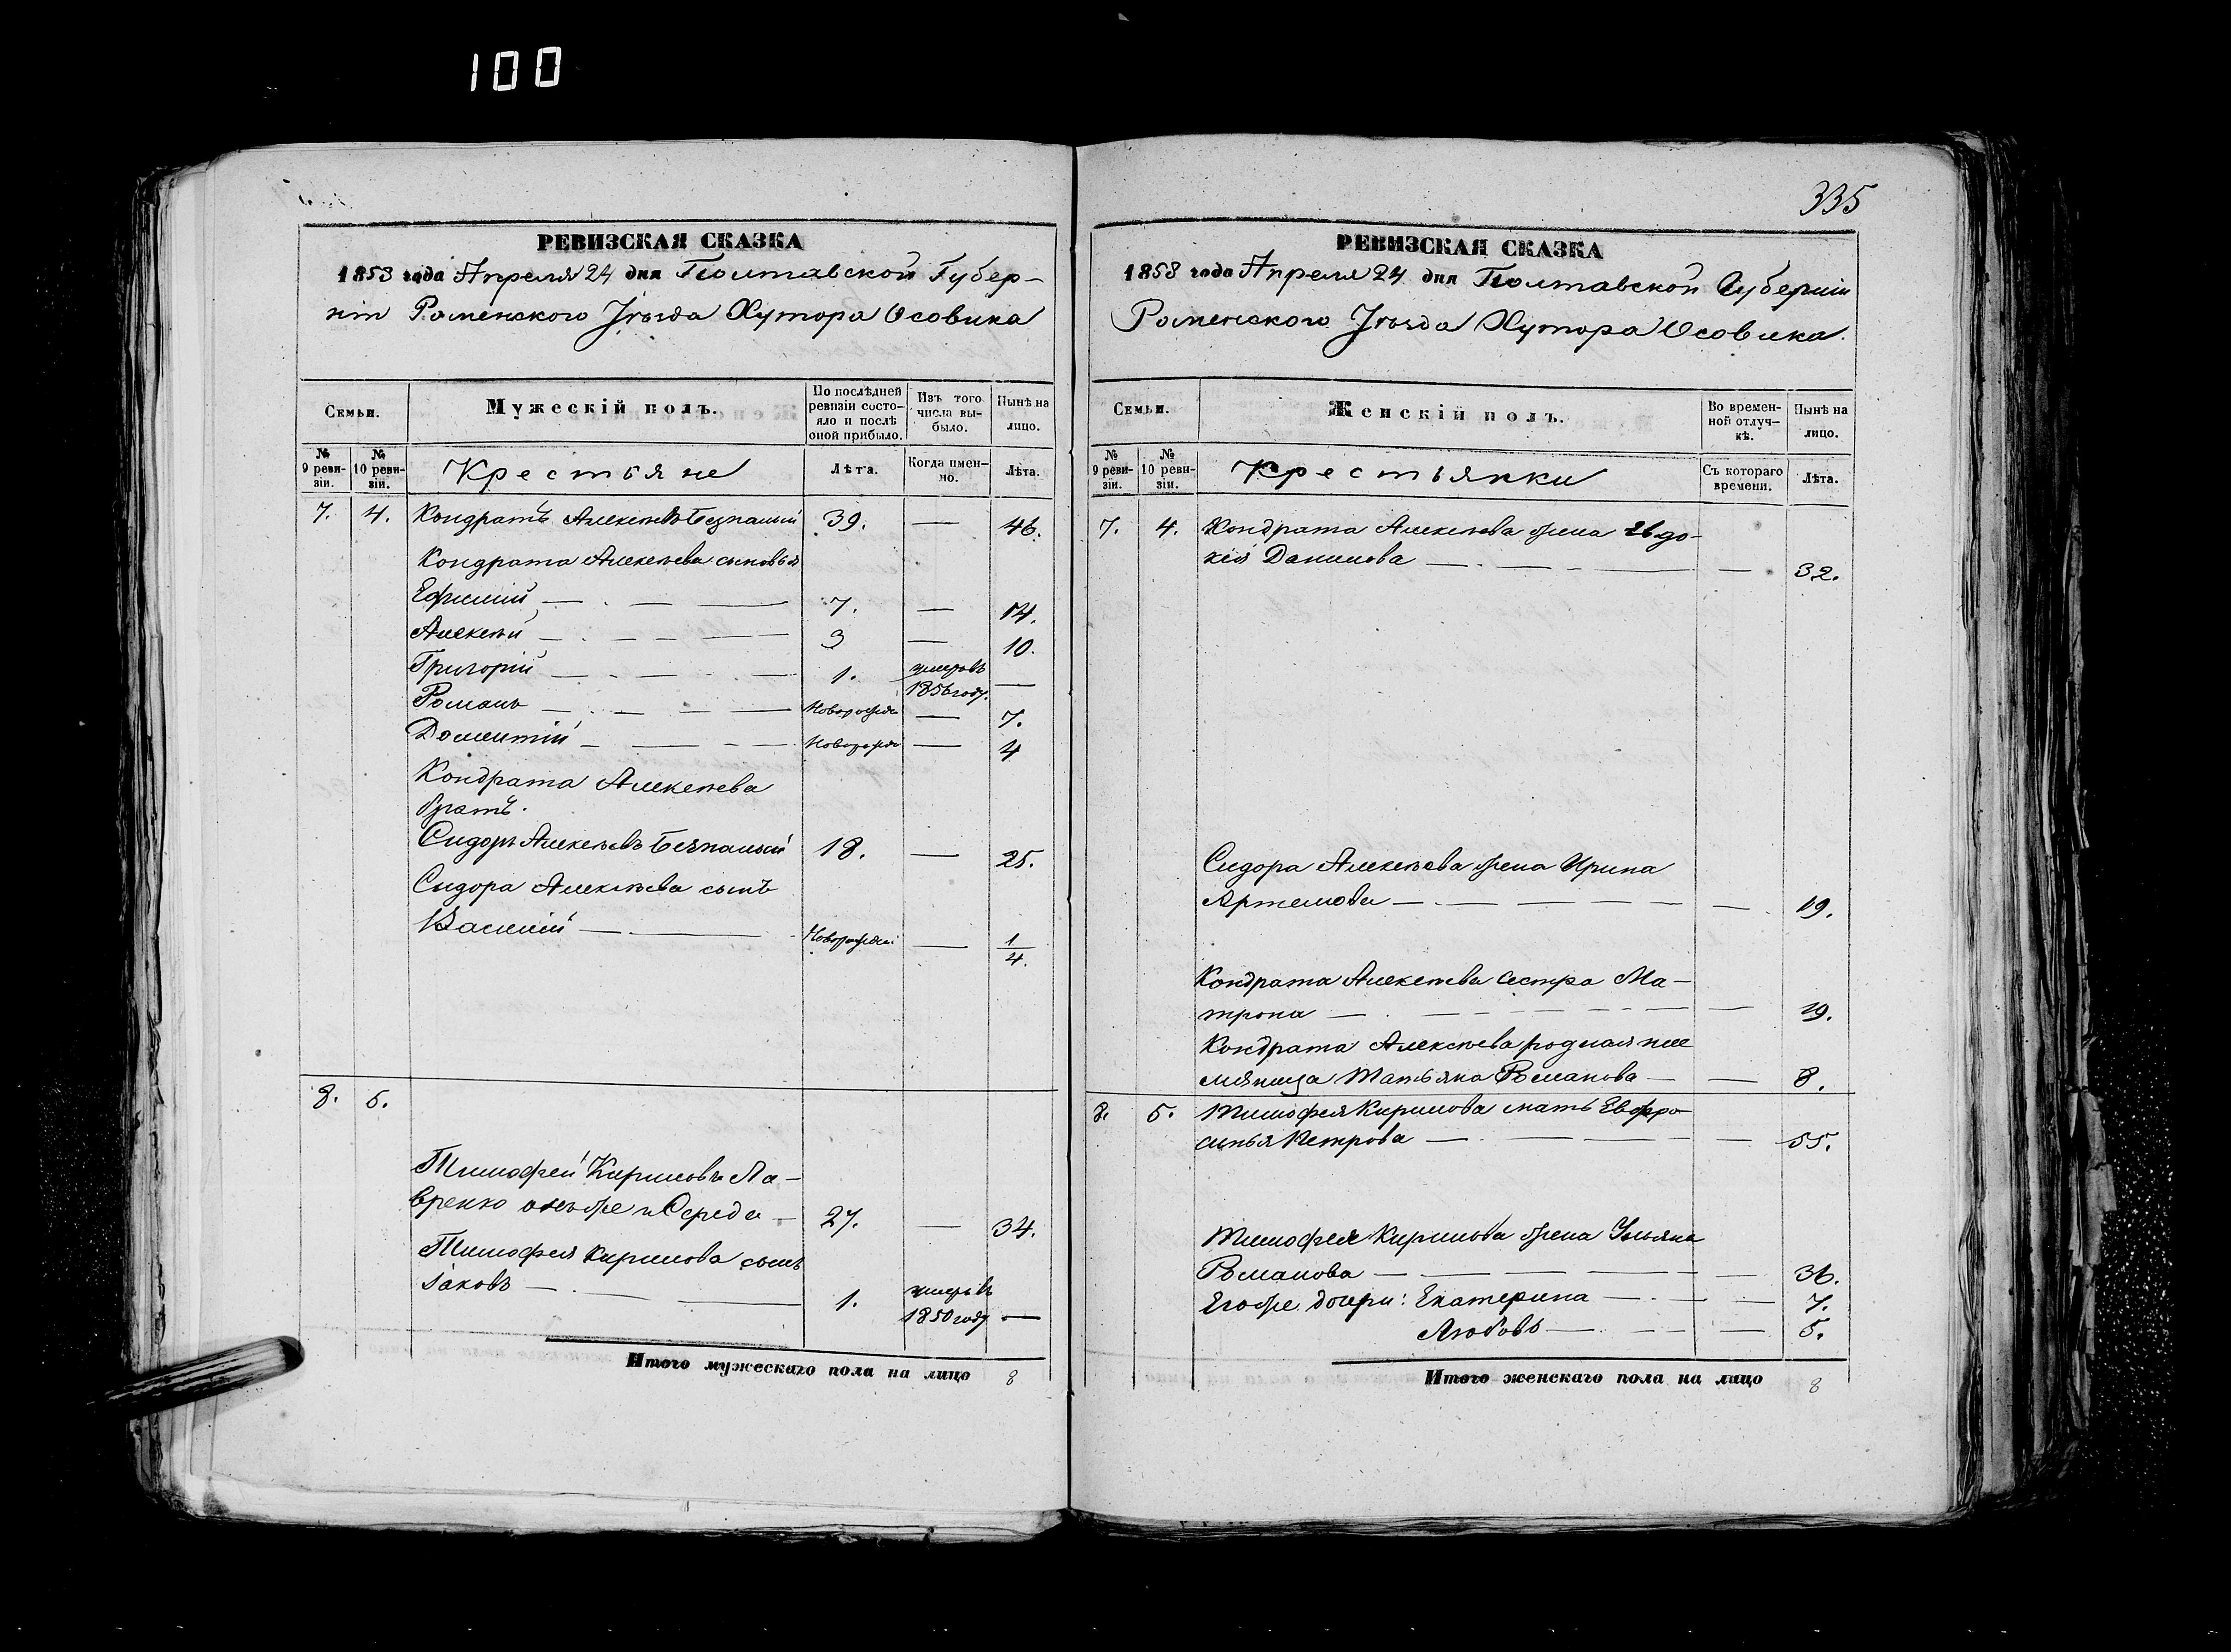 100
335
РЕВИЗСКАЯ СКАЗКА
1858 года Апреля 24 дня Полтавской Губер-
нiи Роменского Уѣзда Хутора Осовика
Семьи.
Мужескiй полъ.
По послѣдней ревизiи состо-яло и послѣ оной прибыло.
Изъ того числа вы-было.
Нынѣ на лицо.
№ 9 реви-зiи.
№ 10 реви-зiи.
Крестьяне
Лѣта.
Когда имен-но.
Лѣта.
7. 4. Кондратъ Алексѣевъ Безпалый 39. — 46.
Кондрата Алексѣева сыновья
Ефимiй — 7. — 14.
Алексѣй — 3 — 10.
Григорiй — 1. умеръ въ 1856 году. —
Романъ — Новорожде — 7.
Доментiй — Новорожде — 4
Кондрата Алексѣева
братъ.
Сидоръ Алексѣевъ Безпалый 18. — 25.
Сидора Алексѣева сынъ
Василiй — Новорожден — 1/4.
8. 5.
Тимофей Кириловъ Ла-
вренко онъ же и Середа — 27. — 34.
Тимофея Кирилова сынъ
Iаковъ — 1. умеръ въ 1850 году —
Итого мужескаго пола на лицо 8
РЕВИЗСКАЯ СКАЗКА
1858 года Апреля 24 дня Полтавской Губернiи
Роменского Уѣзда Хутора Осовика.
Семьи.
Женскiй полъ.
Во времен-ной отлуч-кѣ.
Нынѣ на лицо.
№ 9 реви-зiи.
№ 10 реви-зiи.
Крестьянки
Съ котораго времени.
Лѣта.
7. 4. Кондрата Алексѣева жена Евдо-
кiя Данилова — — 32.
Сидора Алексѣева жена Ирина
Артемова — — 19.
Кондрата Алексѣева сестра Ма-
трона — — 19.
Кондрата Алексѣева родная пле
мяница Татьяна Романова — — 8.
8. 5. Тимофея Кирилова мать Евфро-
синья Петрова — — 55.
Тимофея Кирилова жена Ульяна
Романова — — 36.
Его же дочери: Екатерина — — 7.
Любовь — — 5.
Итого женскаго пола на лицо 8